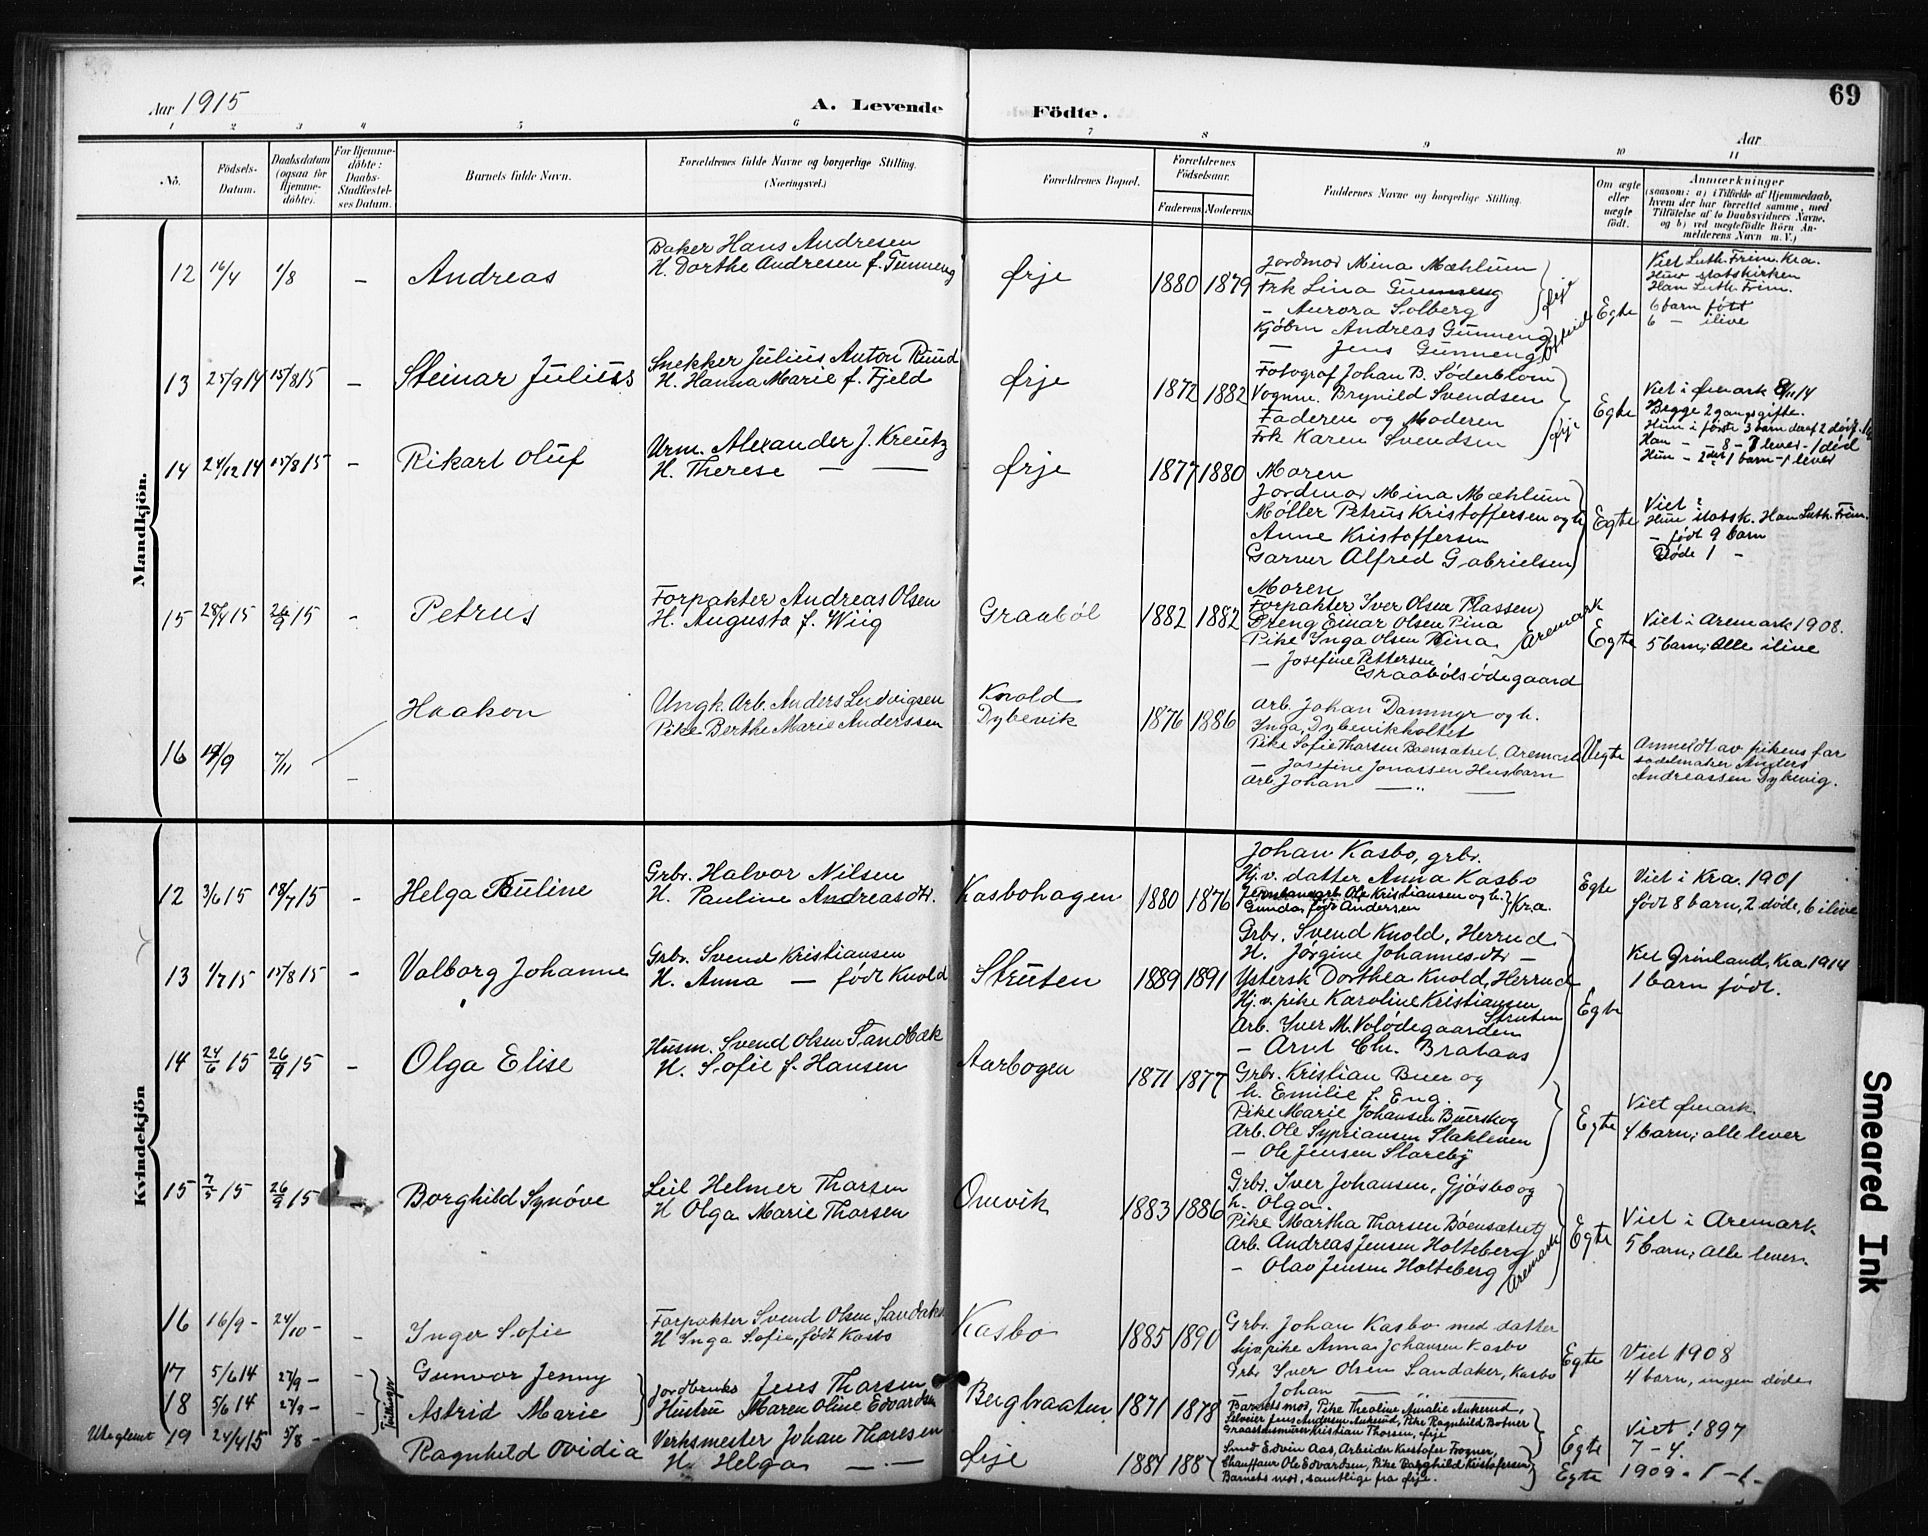 Aar 1915
A. Levende Födte.
69
Aar
1 2 3 4 5 6 7 8 9 10 11
No.
Födsels-Datum.
Daabsdatum (ogsaa for Hjemme-döbte).
For Hjemme-döbte: Daabs-Stadfæstel-ses Datum.
Barnets fulde Navn.
Forældrenes fulde Navne og borgerlige Stilling. (Næringsvei.)
Forældrenes Bopæl.
Forældrenes Födselsaar.
Faderens Moderens
Faddernes Navne og borgerlige Stilling.
Om ægte eller uægte födt.
Anmærkninger
(saasom: a) i Tilfælde af Hjemmedaab,
hvem der har forrettet samme, med
Tilföielse af to Daabsvidners Navne,
og b) ved uægtefödte Börn An-
melderens Navn m. V.)
Mandkjön.
12 16/4 1/8 – Andreas
Baker Hans Andresen
H. Dorthe Andresen f. Gunneng
Ørje 1880 1879
Jordmor Mina Mæhlum
Frk Lina Gunneng
– Aurora Solberg
Kjøbm Andreas Gunneng
– Jens Gunneng
Ørje
Egte
Viet Luth. Frim. Kra.
Hun statskirken
Han Luth. Frim.
6 barn født
6 – ilive
13 25/9 14 15/8 15 – Steinar Julius
Snekker Julius Anton Ruud
H. Hanna Marie f. Fjeld
Ørje 1872 1882
Fotograf Johan B. Söderblom
Vognm. Brynild Svendsen
Faderen og Moderen
Frk Karen Svendsen
Ørje
Egte
Viet i Ømark 8/11 14
Begge 2 gangs gifte.
Hun i første 3 barn deraf 2 død
Han – – 8 – 7 lever – 1 død
Hun – 2det 1 barn – 1 lever
14 24/12 14 15/8 15 – Rikart Oluf
Urm. Alexander J. Kreutz
H. Therese – –
Ørje 1877 1880
Moren
Jordmor Mina Mæhlum
Møller Petrus Kristoffersen og h.
Anne Kristoffersen
Garver Alfred Gabrielsen
Egte
Viet?
Hun statsk. Han Luth. Frim.
– født 9 barn
Døde 1 –
15 28/4 15 26/9 15 – Petrus
Forpakter Andreas Olsen
H. Augusta f. Wiig
Graabøl 1882 1882
Moren
Forpakter Iver Olsen Plassen
Dreng Einar Olsen Pina
Pike Inga Olsen Pina
– Josefine Pettersen
Graabølsødegaard
Aremark
Egte
Viet i Aremark 1908.
5 barn; Alle ilive
16 19/9 7/11 – Haakon
Ungk. Arb. Anders Ludvigsen
Pike Berthe Marie Anderssen
Knold
Dybevik 1876 1886
Arb. Johan Dammyr og h.
Inga, Dybevikholtet
Pike Sofie Thorsen Boensætret, Aremark
– Josefine Jonassen Husbarn
Arb. Johan – „ –
Uegte
Anmeldt av pikens far
sadelmaker Anders
Andreassen Dybevig.
Kvindekjön
12 3/6 15 18/7 15 – Helga Pauline
Grbr. Halvor Nilsen
H. Pauline Andreasdtr.
Kasbohagen 1880 1876
Johan Kasbo, grbr.
Hj.v. datter Anna Kasbo
Jernbanearb. Ole Kristiansen og h.
Gunda, født Andersen
Kra.
Egte
Viet i Kra. 1901
født 8 barn, 2 døde, 6 ilive
13 1/7 15 15/8 15 – Valborg Johanne
Grbr. Svend Kristiansen
H. Anna – født Knold
Struten 1889 1891
Grbr. Svend Knold, Herrud
H. Jørgine Johannesdtr –
Ystersk Dorthea Knold, Herrud
Hj.v. pike Karoline Kristiansen
Struten
Arb. Iver M. Volødegaarden
– Arnt Chr. Brataas
Egte
Viet Grönland, Kra 1914
1 barn født.
14 24/6 15 26/9 15 – Olga Elise
Husm. Svend Olsen Sandbæk
H. Sofie f. Hansen
Aarbogen 1871 1877
Grbr. Kristian Buer og
h. Emilie f. Eng.
Pike Marie Johansen Buerskog
Arb. Ole Sypriansen Slakleven
– Ole Jensen Slareby
Egte
Viet Ømark.
4 barn; alle lever
15 7/5 15 26/9 15 – Borghild Synøve
Leil Helmer Thorsen
H Olga Marie Thorsen
Onevik 1883 1886
Grbr. Iver Johansen, Gjøsbo og
h. Olga.
Pike Martha Thorsen Bøensætret
Arb. Andreas Jensen Holteberg
– Olav Jensen Holteberg
Aremark
Egte
Viet i Aremark.
5 barn; Alle lever.
16 16/9 – 24/10 – – Inger Sofie
Forpakter Svend Olsen Sandaker
H Inga Sofie, født Kasbo
Kasbo 1885 1890
Grbr. Johan Kasbo med datter
hjv. pike Anna Johansen Kasbo
Grbr Iver Olsen Sandaker, Kasbo
Johan –
Egte
Viet 1908
4 barn, ingen døde
17 5/6 14 27/9 – – Gunvor Jenny
18 5/6 14 27/9 – – Astrid Marie
Tvillinger
Jordbruker Jens Thorsen
Hustru Maren Oline Edvardsen
Bergbraaten 1871 1878
Barnets mor, Pike Theoline Amalie Ankerud,
Selveier Jens Andersen Ankerud, Pike Ragnhild Botner
Graastensmurer Kristian Thorsen, Ørje
Egte
Viet 1897
7 – 4.
Uteglemt 19 24/4 15 5/8 – Ragnhild Ovidia
Verksmester Johan Thoresen
H. Helga – –
Ørje 1881 1887
Smed Edvin Aas, Arbeider Kristofer Trogner,
Chauffaur Ole Edvardsen, Pike Borghild Kristofersen
Barnets mor, samtlige fra Ørje.
Egte 1909 – 1 – 1 –
Smeared Ink